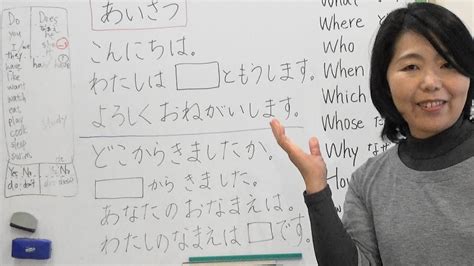 Do Does
you
they
have has
like
want
watch
eat
play
study
cook
sleep
swim
Yes No
あいさつ
こんにちは。
わたしは ともうします。
よろしく おねがいします。
どこからきましたか。
から きました。
あなたの おなまえは。
わたしのなまえは です。
What
Where
Who
When
Which
Whose
Why